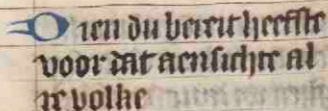 Dien du bereit heefste
voor dat aensichte al
re volke